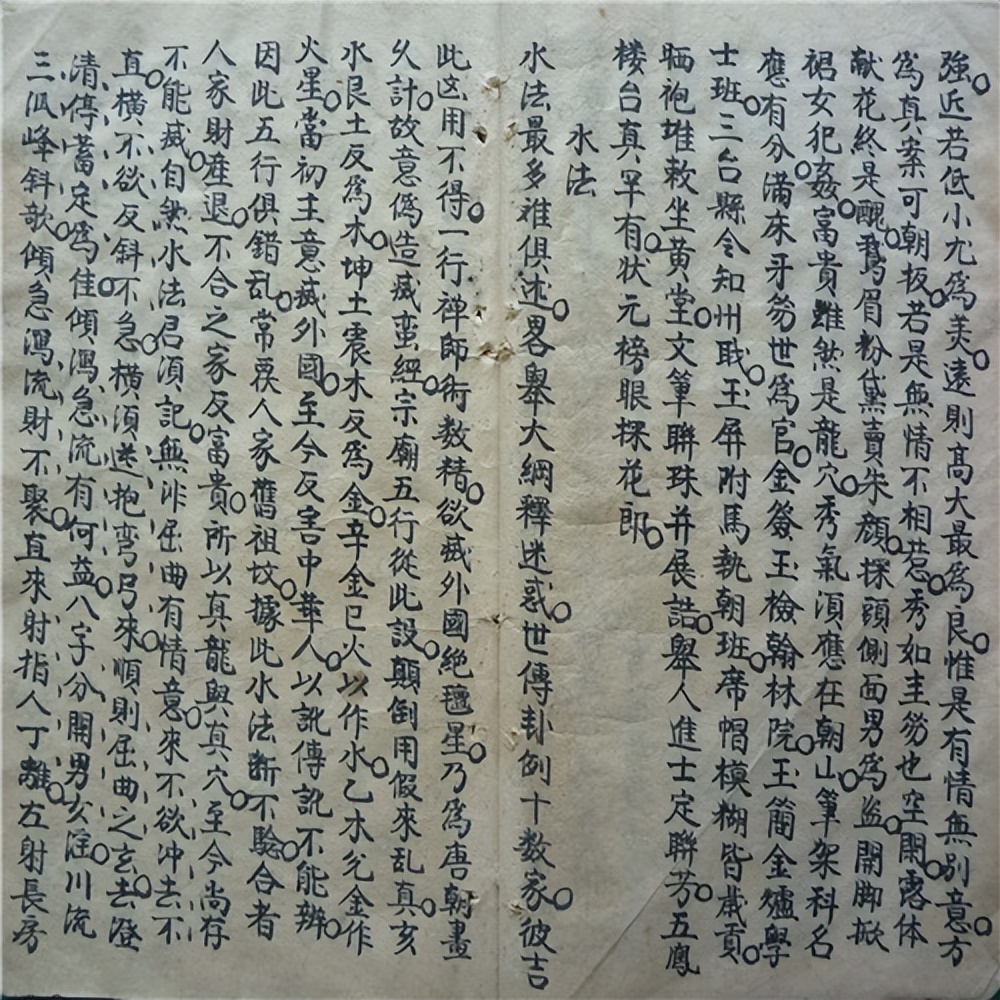 強近若低小尤為美遠則高大最為良惟是有情無別意方
為真案可朝扳若是無情不相惹秀如圭笏也空閑露体
献花終是醜鵞眉粉黛賣朱顔探頭側面男為盗開脚掀
裙女犯姦富貴雖然是龍穴秀氣須應在朝山筆架科名
應有分滿床牙笏世為官金簽玉檢翰林院玉簡金爐學
士班三台縣令知州职玉屏附馬執朝班席帽模糊皆歲貢
牺袍堆敕坐黄堂文筆聯珠并展誥舉人進士定聯芳五鳳
楼台真罕有状元榜眼探花郎
水法
水法最多难俱述畧舉大綱釋迷惑世傳卦例十数家彼吉
此凶用不得一行禅師術数精欲滅外國绝𣭈星乃為唐朝畫
久計故意偽造滅蛮經宗廟五行從此設顛倒用假來乱真亥
水艮土反為木坤土震木反為金辛金巳火以作水乙木兊金作
火星當初主意滅外國至今反害中華人以訛傳訛不能辨
因此五行俱錯乱常要人家舊祖坟據此水法断不驗合者
人家財産退不合之家反富貴所以真龍與真穴至今尚存
不能滅自然水法君須記無非屈曲有情意來不欲冲去不
直横不欲反斜不急横須遶抱弯弓來順則屈曲之玄去澄
清停蓄定為佳傾瀉急流有何益八字分開男女淫川流
三瓜峰斜歌傾急瀉流財不聚直來射指人丁離左射長房